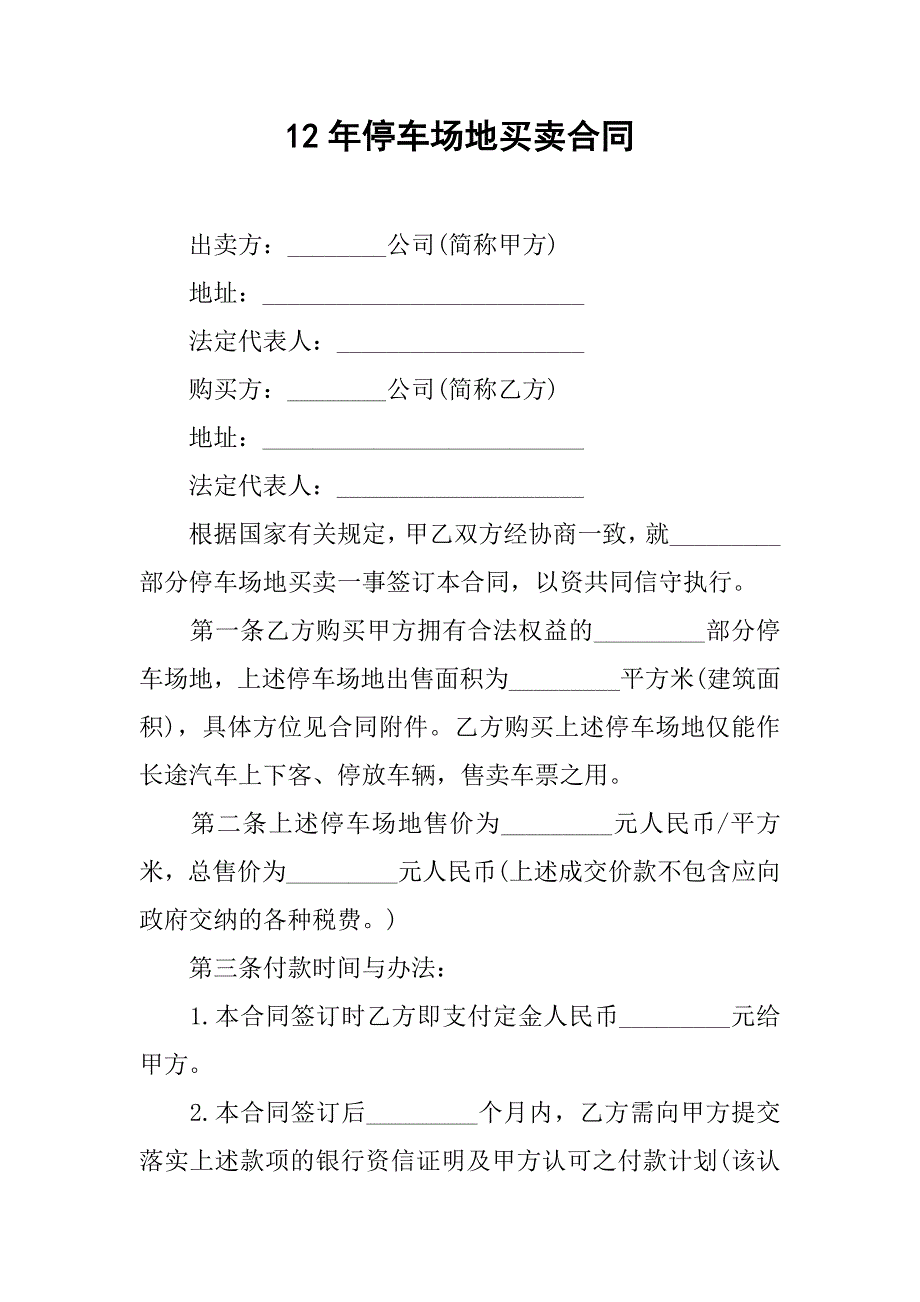 12年停车场地买卖合同
出卖方：________公司(简称甲方)
地址：__________________________
法定代表人：____________________
购买方：________公司(简称乙方)
地址：__________________________
法定代表人：____________________
根据国家有关规定，甲乙双方经协商一致，就_________
部分停车场地买卖一事签订本合同，以资共同信守执行。
第一条乙方购买甲方拥有合法权益的_________部分停
车场地，上述停车场地出售面积为_________平方米(建筑面
积)，具体方位见合同附件。乙方购买上述停车场地仅能作
长途汽车上下客、停放车辆，售卖车票之用。
第二条上述停车场地售价为_________元人民币/平方
米，总售价为_________元人民币(上述成交价款不包含应向
政府交纳的各种税费。)
第三条付款时间与办法：
1.本合同签订时乙方即支付定金人民币_________元给
甲方。
2.本合同签订后_________个月内，乙方需向甲方提交
落实上述款项的银行资信证明及甲方认可之付款计划(该认